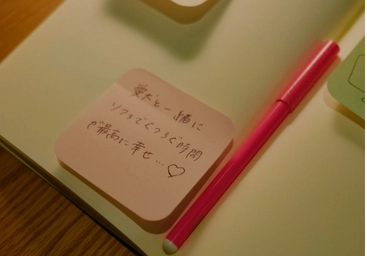 愛犬と一緒に
ソファでくつろぐ時間
が最高に幸せ…♡